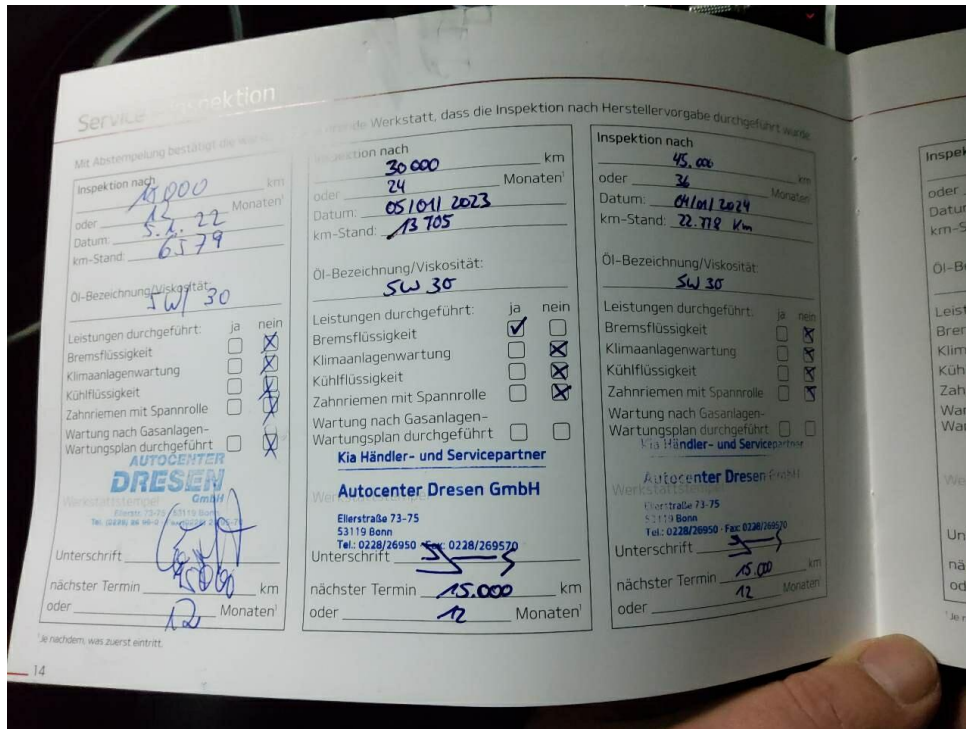 Service - Inspektion
Mit Abstempelung bestätigt die Werkstatt, dass die Inspektion nach Herstellervorgabe durchgeführt wurde
Inspektion nach
15000 km
oder 12 Monaten¹
Datum: 5.1.22
km-Stand: 6579
Öl-Bezeichnung/Viskosität:
5W/30
Leistungen durchgeführt: ja nein
Bremsflüssigkeit
Klimaanlagenwartung
Kühlflüssigkeit
Zahnriemen mit Spannrolle
Wartung nach Gasanlagen-
Wartungsplan durchgeführt
AUTOCENTER
DRESEN
GmbH
Werkstattstempel
Unterschrift
nächster Termin 15000 km
oder 12 Monaten¹
¹Je nachdem, was zuerst eintritt.
Inspektion nach
30000 km
oder 24 Monaten¹
Datum: 05/01/2023
km-Stand: 13705
Öl-Bezeichnung/Viskosität:
5W30
Leistungen durchgeführt: ja nein
Bremsflüssigkeit
Klimaanlagenwartung
Kühlflüssigkeit
Zahnriemen mit Spannrolle
Wartung nach Gasanlagen-
Wartungsplan durchgeführt
Kia Händler- und Servicepartner
Autocenter Dresen GmbH
Werkstattstempel
Ellerstraße 73-75
53119 Bonn
Tel.: 0228/26950 - Fax: 0228/269570
Unterschrift
nächster Termin 15.000 km
oder 12 Monaten¹
Inspektion nach
45.000 km
oder 36 Monaten¹
Datum: 04/01/2024
km-Stand: 22.778 Km
Öl-Bezeichnung/Viskosität:
5W30
Leistungen durchgeführt: ja nein
Bremsflüssigkeit
Klimaanlagenwartung
Kühlflüssigkeit
Zahnriemen mit Spannrolle
Wartung nach Gasanlagen-
Wartungsplan durchgeführt
Kia Händler- und Servicepartner
Autocenter Dresen GmbH
Werkstattstempel
Ellerstraße 73-75
53119 Bonn
Tel.: 0228/26950 - Fax: 0228/269570
Unterschrift
nächster Termin 15.000 km
oder 12 Monaten¹
14